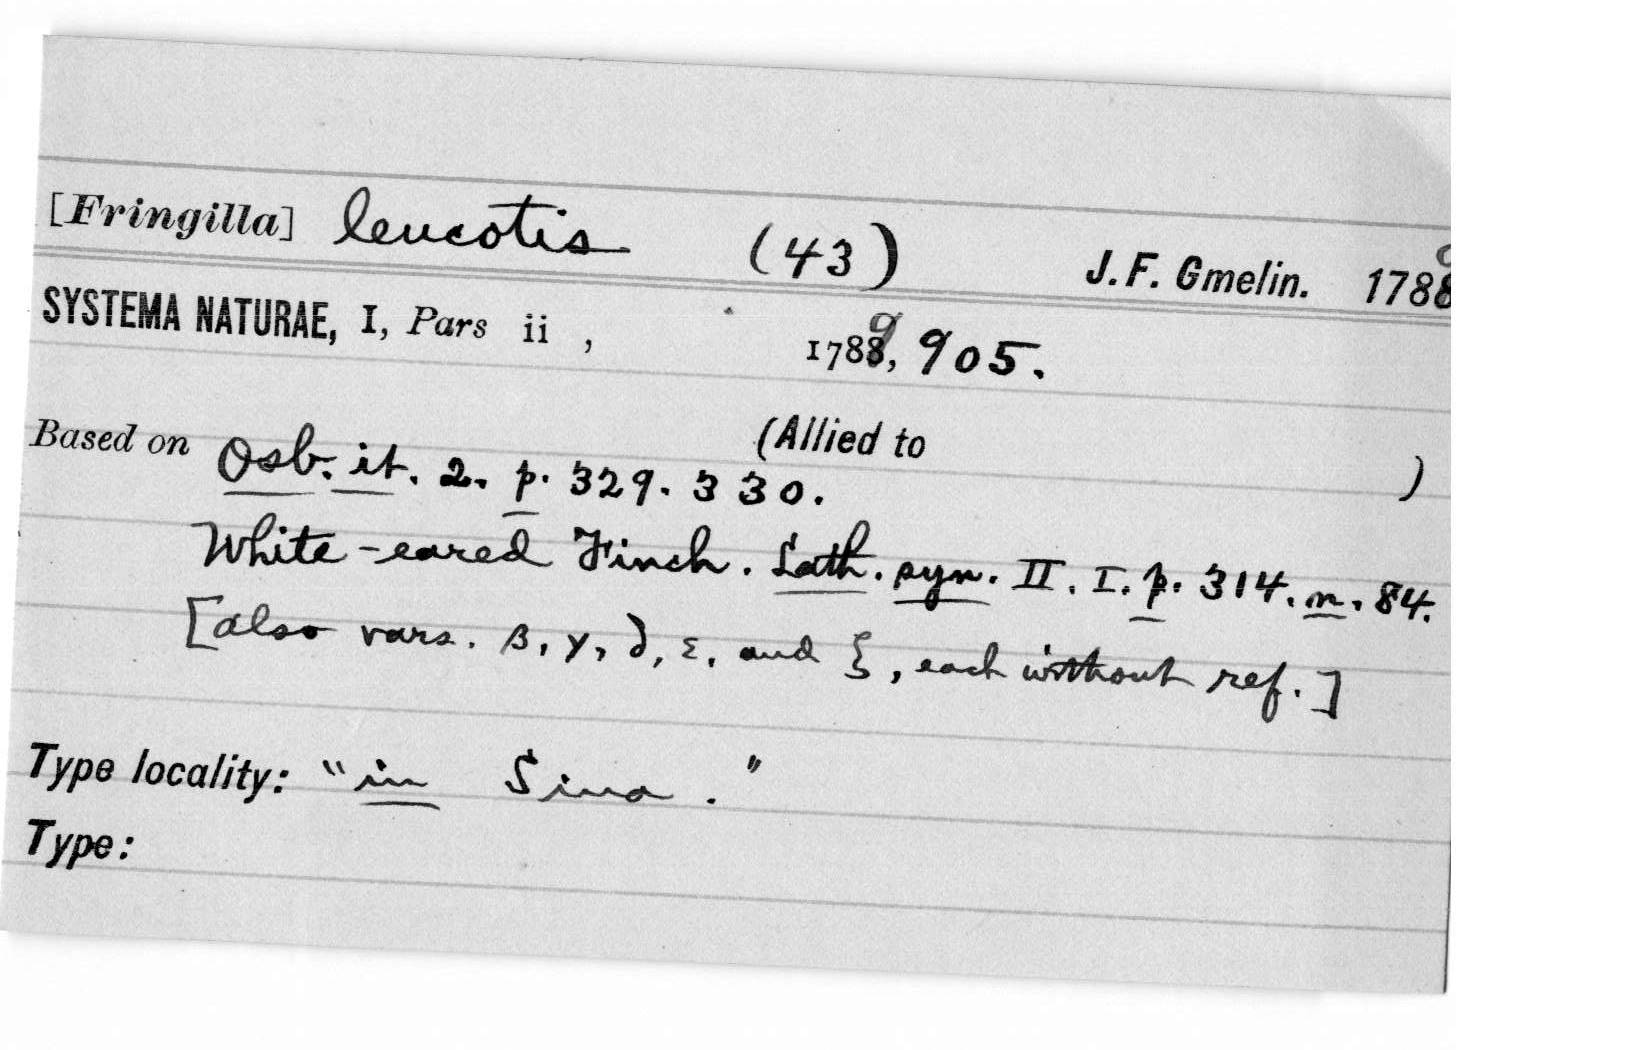 [Fringilla] leucotis (43) J. F. Gmelin. 1788
SYSTEMA NATURAE, I, Pars ii , 1789, 905.
Based on Osb. it. 2. p. 329. 330. (Allied to )
White-eared Finch. Lath. syn. II. I. p. 314. n. 84.
[also vars. β, γ, δ, ε, and ξ, each without ref.]
Type locality: "in Sina."
Type: